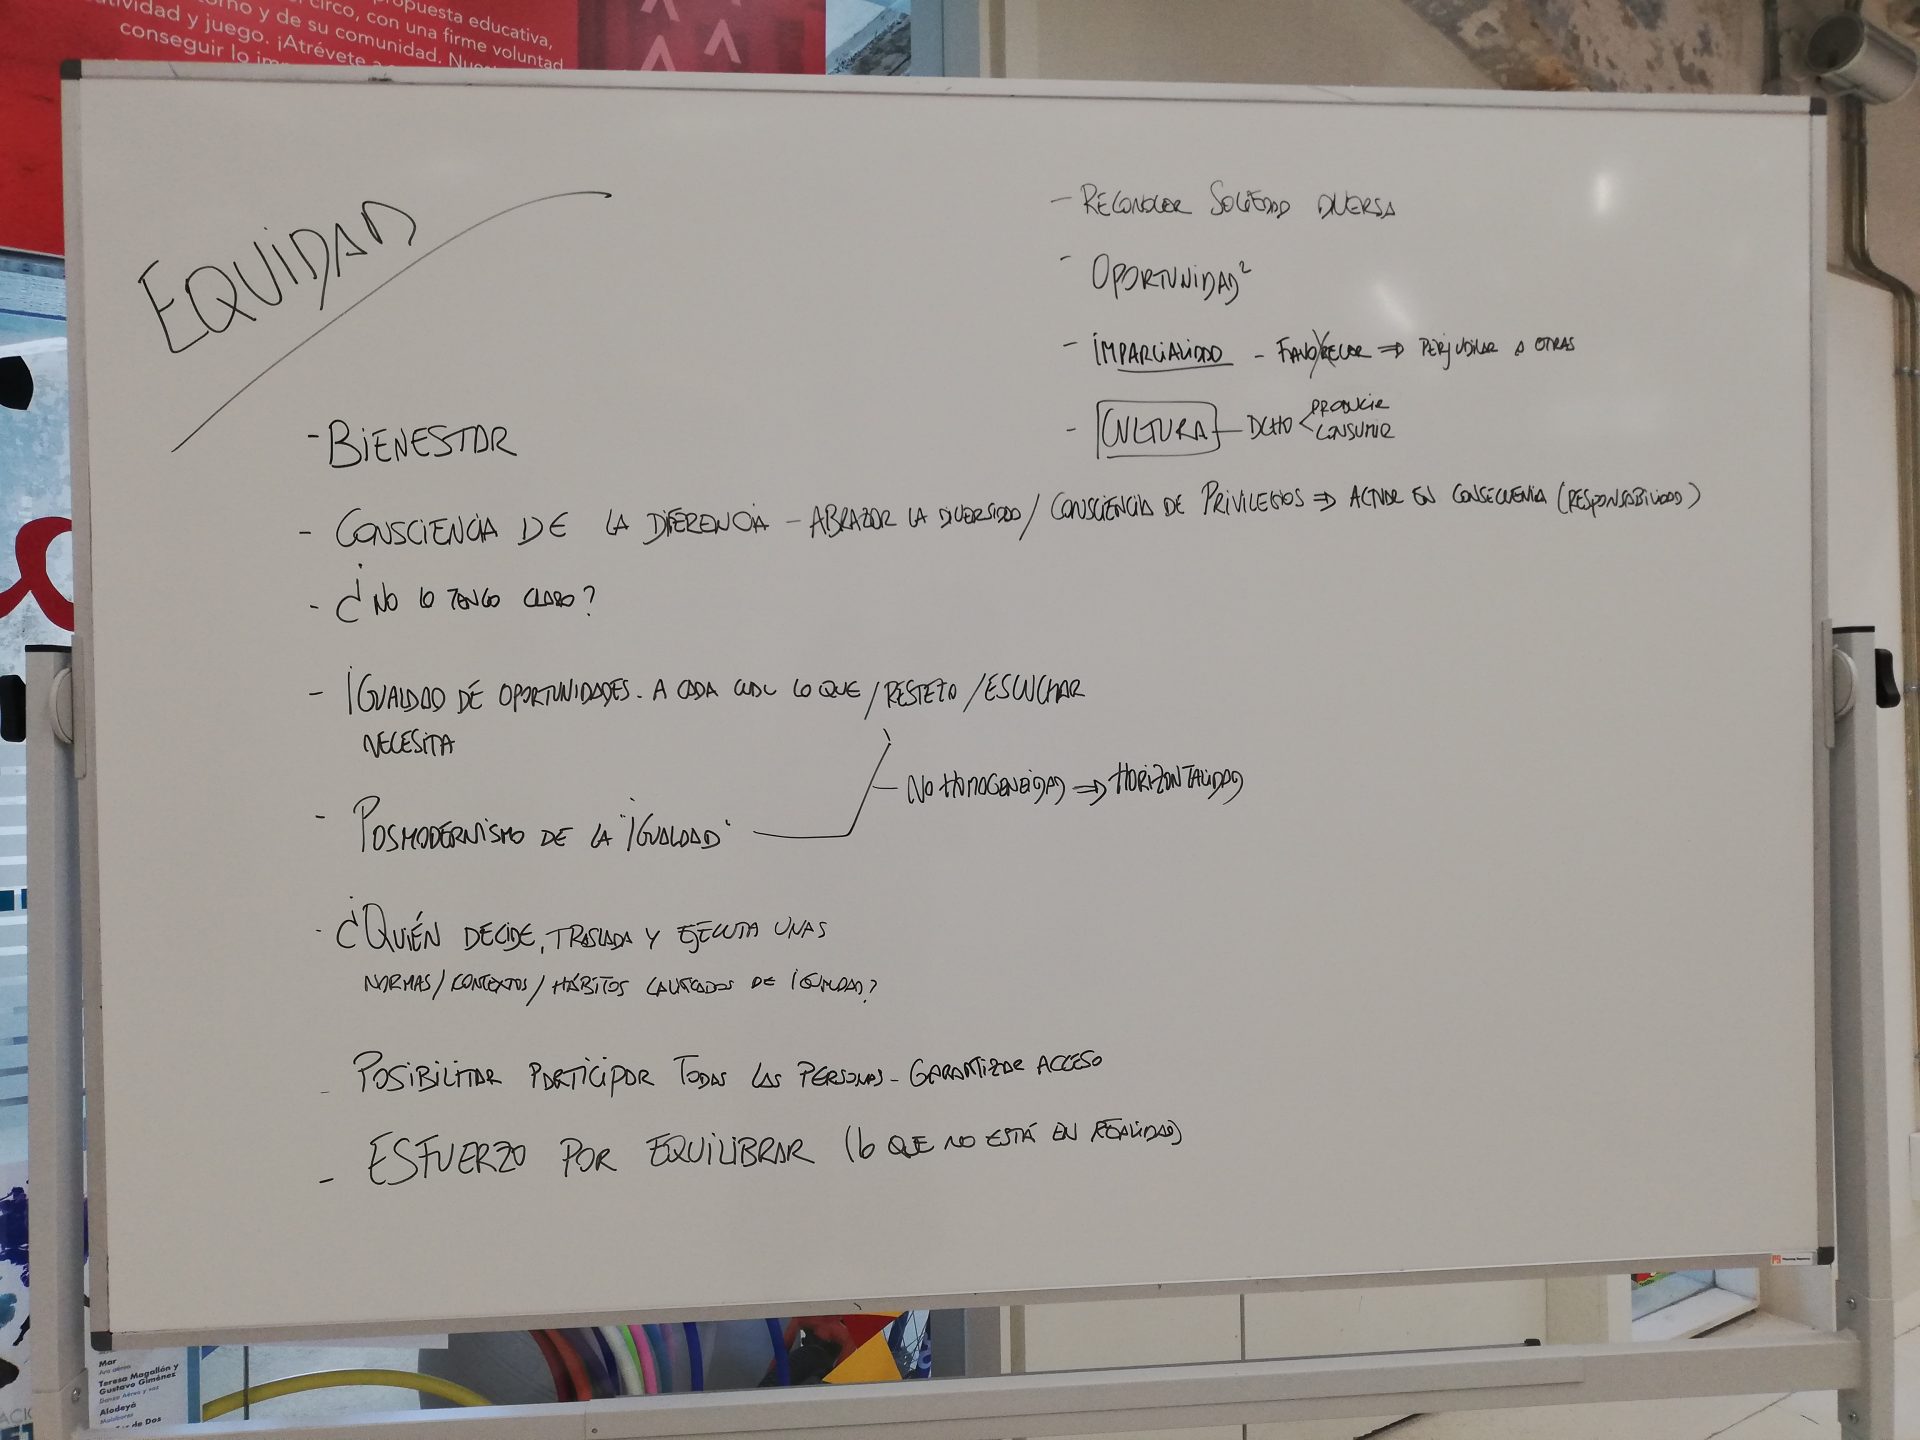 propuesta educativa,
circo, con una firme voluntad
tividad y juego. ¡Atrévete
torno y de su comunidad.
conseguir lo
EQUIDAD
- BIENESTAR
- CONSCIENCIA DE LA DIFERENCIA - ABRAZAR LA DIVERSIDAD / CONSCIENCIA DE PRIVILEGIOS ⇒ ACTUAR EN CONSECUENCIA (RESPONSABILIDAD)
- ¿NO LO TENGO CLARO?
- IGUALDAD DE OPORTUNIDADES. A CADA CUAL LO QUE / RESPETO / ESCUCHAR
NECESITA
- POSMODERNISMO DE LA "IGUALDAD"
- NO HOMOGENEIDAD ⇒ HORIZONTALIDAD
- ¿QUIÉN DECIDE, TRASLADA Y EJECUTA UNAS
NORMAS / CONTEXTOS / HÁBITOS CALIFICADOS DE IGUALDAD?
- POSIBILITAR PARTICIPAR TODAS LAS PERSONAS - GARANTIZAR ACCESO
- ESFUERZO POR EQUILIBRAR (LO QUE NO ESTÁ EN REALIDAD)
- RECONOCER SOCIEDAD DIVERSA
- OPORTUNIDAD²
- IMPARCIALIDAD - FAVORECER ⇒ PERJUDICAR A OTRAS
- CULTURA - DCHO < PRODUCIR
CONSUMIR
Mar
Teresa Magallón y
Gustavo Giménez
Danza Aérea y voz
Alodeyá
Malabares
de Dos